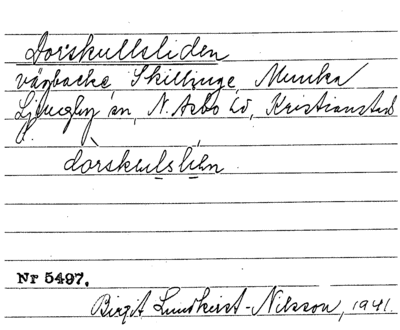 Dorskullsliden
vägbacke, Skillinge, Munka
Ljungby sn, N. Åsbo hd, Kristianstads
l.
dòrskulslíən
Nr 5497.
Birgit Lundkvist-Nilsson, 1941.